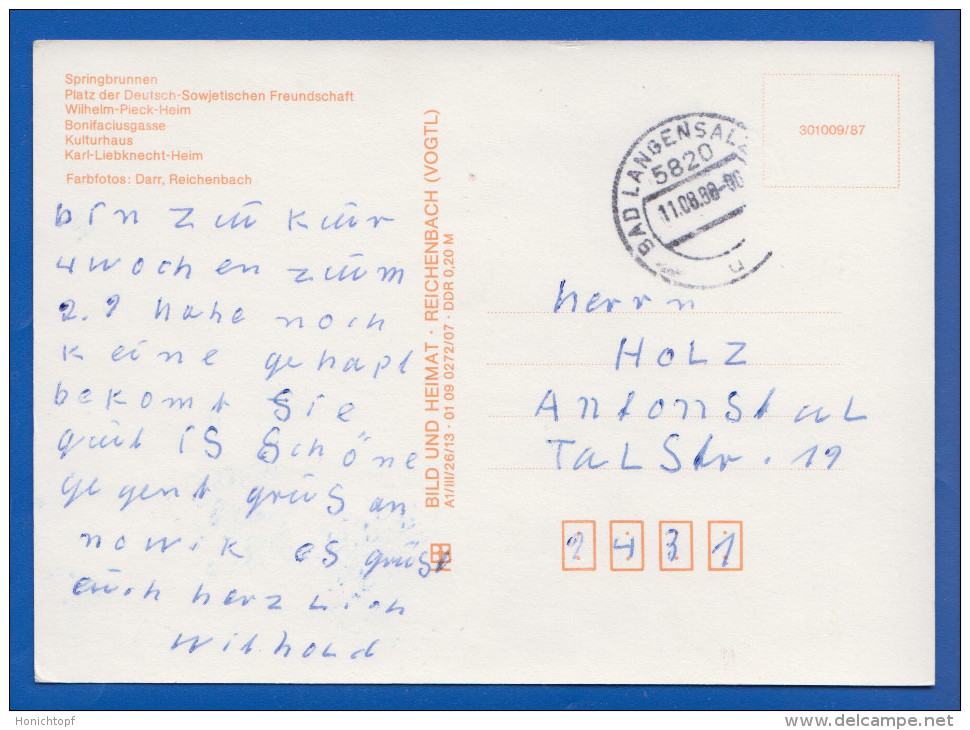 Springbrunnen
Platz der Deutsch-Sowjetischen Freundschaft
Wilhelm-Pieck-Heim
Bonifaciusgasse
Kulturhaus
Karl-Liebknecht-Heim
Farbfotos: Darr, Reichenbach
bin zuu kuur
4 wochen zuum
2. 9 habe noch
keine gehapt
bekomt Sie
guut iS Schöne
gegent gruuS an
nowik es grüst
euch herzlich
Withold
BILD UND HEIMAT · REICHENBACH (VOGTL)
A1/III/26/13 · 01 09 0272/07 · DDR 0,20 M
BAD LANGENSALZ
5820
11.08.88-
n
301009/87
Herrn
HOLZ
AntonStal
TaLStr. 19
2 4 3 1
Honichtopf
www.delcampe.net